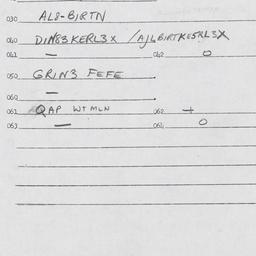 030 AL8-BIRTN
040 DIN83KERL3X / AJLBIRTKE5RL3X
041 — 042 O
050 GRIN3 FEFE
060 —
061 QAP WTMLN 062 +
063 — 064 O